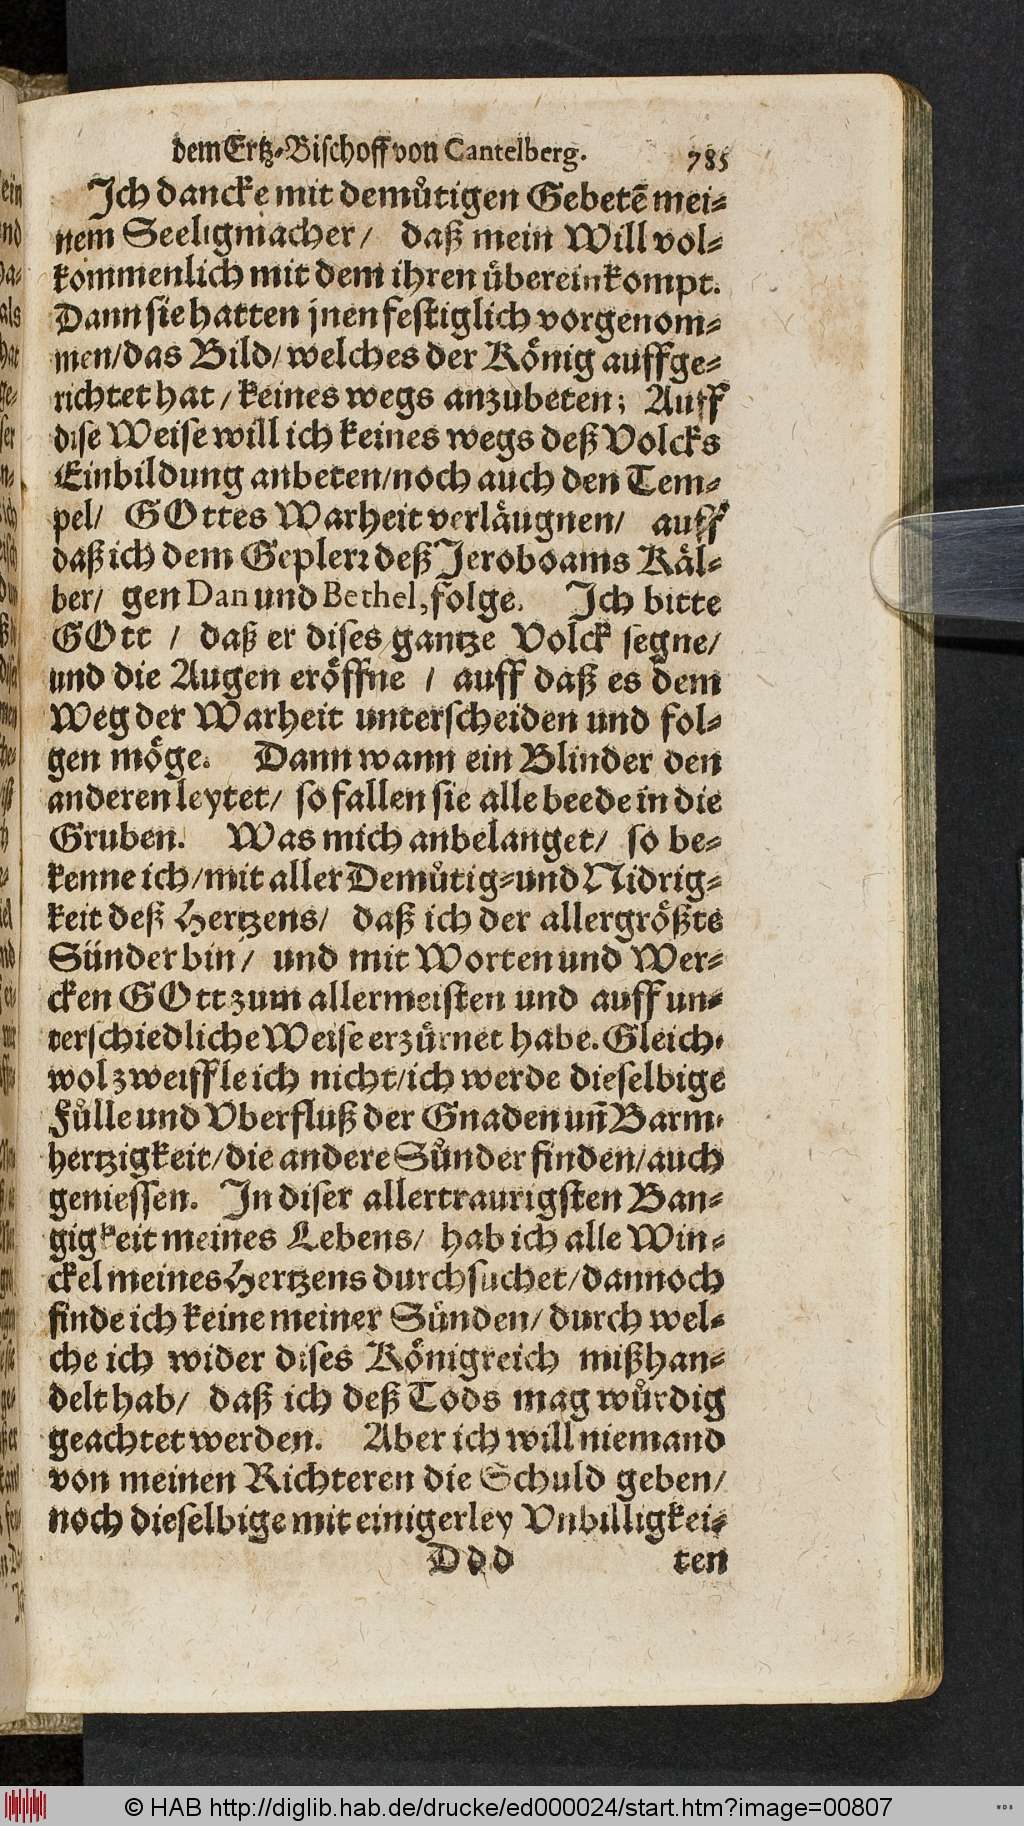 dem Ertz-Bischoff von Cantelberg. 785
Ich dancke mit demuͤtigen Gebetē mei-
nem Seeligmacher/ daß mein Will vol-
kommenlich mit dem ihren uͤbereinkompt.
Dann sie hatten jnen festiglich vorgenom-
men/das Bild/welches der Koͤnig auffge-
richtet hat/keines wegs anzubeten; Auff
dise Weise will ich keines wegs deß Volcks
Einbildung anbeten/noch auch den Tem-
pel/ GOttes Warheit verlaͤugnen/ auff
daß ich dem Geplerr deß Jeroboams Kaͤl-
ber/ gen Dan und Bethel, folge. Ich bitte
GOtt / daß er dises gantze Volck segne/
und die Augen eroͤffne / auff daß es dem
Weg der Warheit unterscheiden und fol-
gen moͤge. Dann wann ein Blinder den
anderen leytet/ so fallen sie alle beede in die
Gruben. Was mich anbelanget/ so be-
kenne ich/mit aller Demuͤtig-und Nidrig-
keit deß Hertzens/ daß ich der allergroͤßte
Suͤnder bin/ und mit Worten und Wer-
cken GOtt zum allermeisten und auff un-
terschiedliche Weise erzuͤrnet habe. Gleich-
wol zweiffle ich nicht/ich werde dieselbige
Fuͤlle und Vberfluß der Gnaden uñ Barm-
hertzigkeit/die andere Suͤnder finden/auch
geniessen. In diser allertraurigsten Ban-
gigkeit meines Lebens/ hab ich alle Win-
ckel meines Hertzens durchsuchet/dannoch
finde ich keine meiner Suͤnden/durch wel-
che ich wider dises Koͤnigreich mißhan-
delt hab/ daß ich deß Tods mag wuͤrdig
geachtet werden. Aber ich will niemand
von meinen Richteren die Schuld geben/
noch dieselbige mit einigerley Vnbilligkei-
Ddd ten
© HAB http://diglib.hab.de/drucke/ed000024/start.htm?image=00807